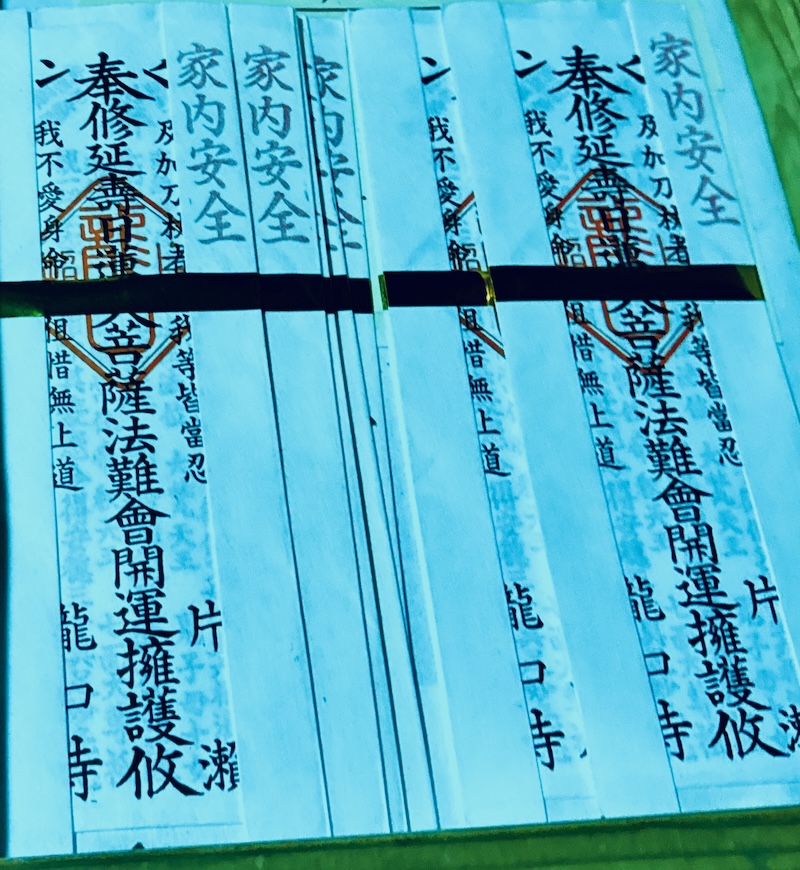 家内安全
及加刀杖者
我等皆當忍
片瀬
奉修延壽日蓮大菩薩法難會開運擁護攸
我不愛身命
但惜無上道
龍口寺
我不愛身命
但惜無上道
龍口寺
家内安全
家内安全
家内安全
及加刀杖者
我等皆當忍
片瀬
奉修延壽日蓮大菩薩法難會開運擁護攸
我不愛身命
但惜無上道
龍口寺